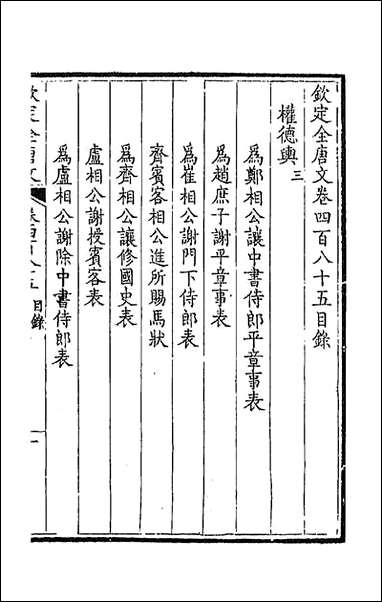 欽定全唐文卷四百八十五目錄
權德輿三
為鄭相公讓中書侍郎平章事表
為趙庶子謝平章事表
為崔相公謝門下侍郎表
齊賓客相公進所賜馬狀
為齊相公讓修國史表
盧相公謝授賓客表
為盧相公謝除中書侍郎表
欽定全唐文 卷四百八十五 目錄 一